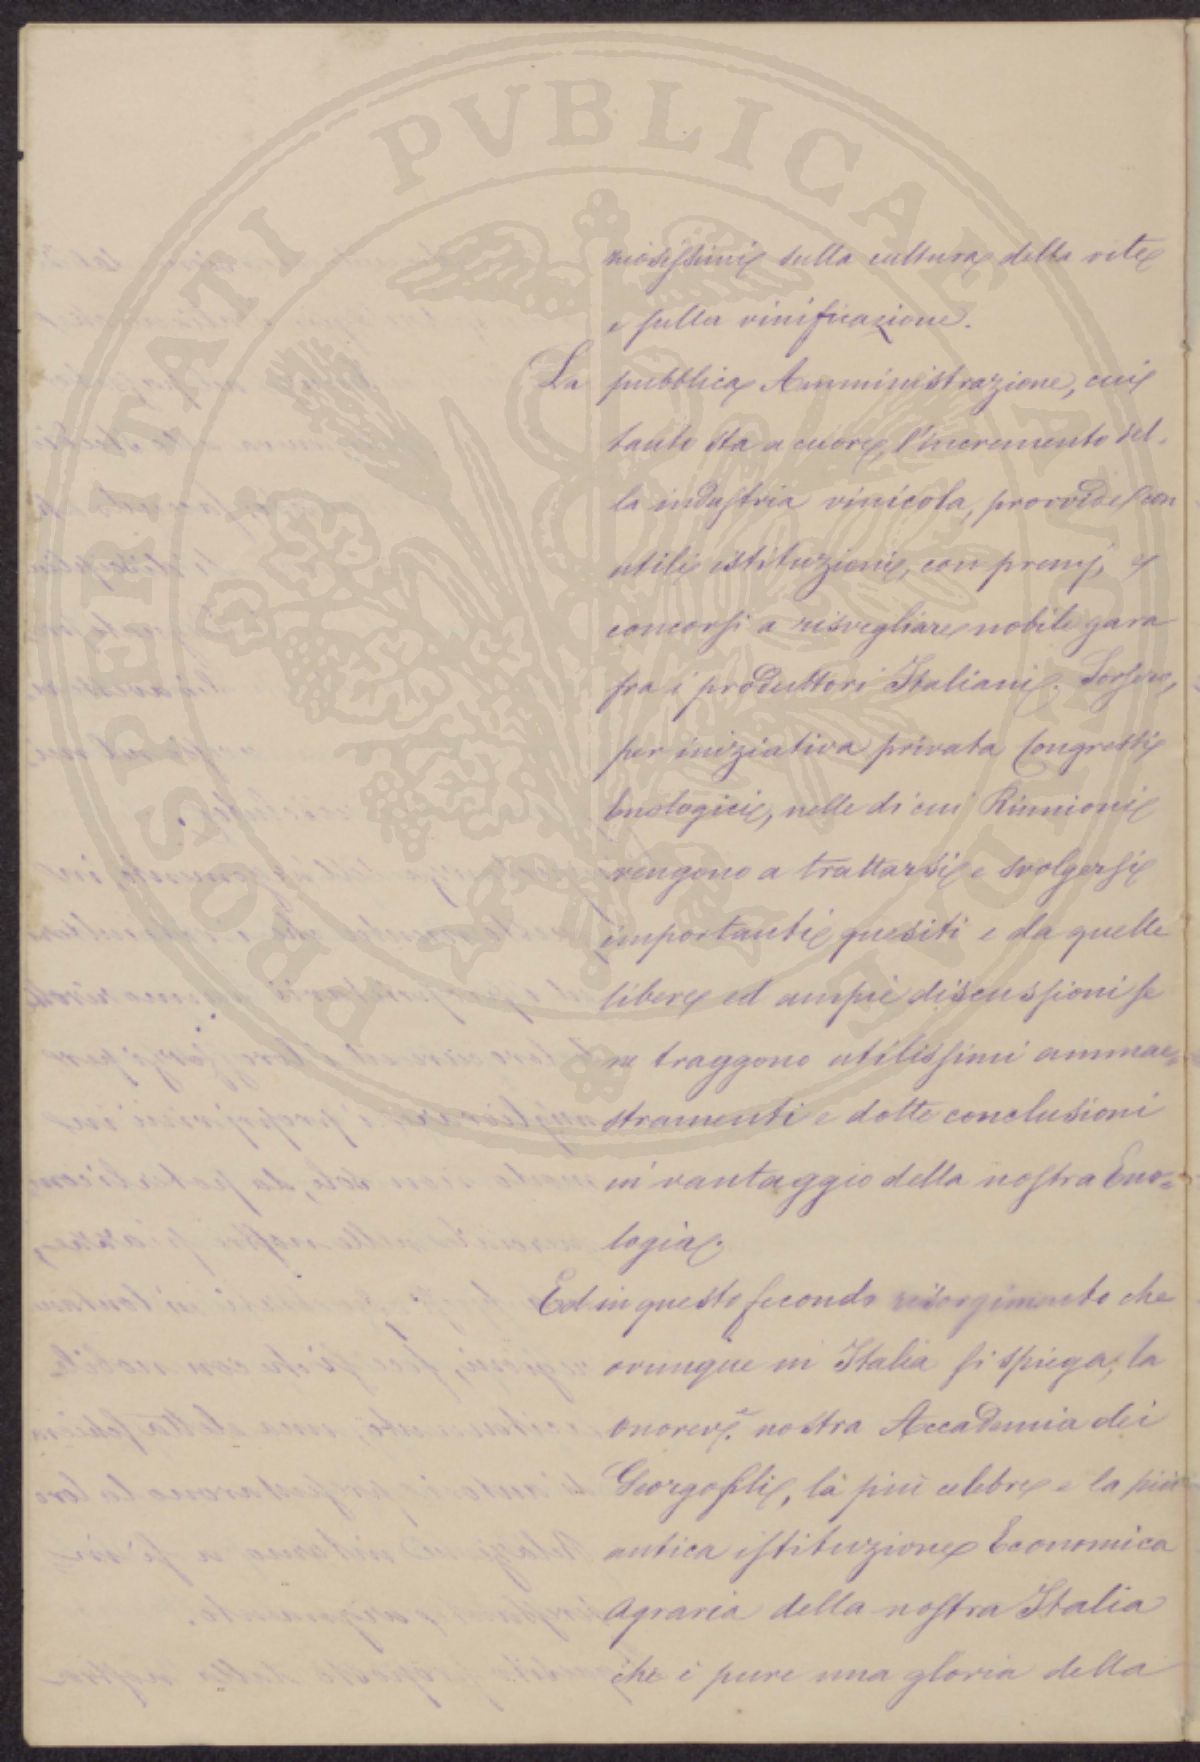 PROSPERITATI PVBLICAE AVGENDAE
niosissimi sulla cultura della vite
e sulla vinificazione.
La pubblica Amministrazione, cui
tanto sta a cuore l'incremento del-
la industria vinicola, provvide con
utili istituzioni, con premj, e
concorsi a risvegliare nobile gara
fra i produttori Italiani. Sorsero,
per iniziativa privata Congressi
Enologici, nelle di cui Riunioni
vengono a trattarsi e svolgersi
importanti quesiti e da quelle
libere ed ampie discussioni se
ne traggono utilissimi ammae=
stramenti e dotte conclusioni
in vantaggio della nostra Eno=
logia.
Ed in questo secondo risorgimento che
ovunque in Italia si spiega, la
onorev.e nostra Accademia dei
Georgofili, la più celebre e la più
antica istituzione Economica
Agraria della nostra Italia
che è pure una gloria della